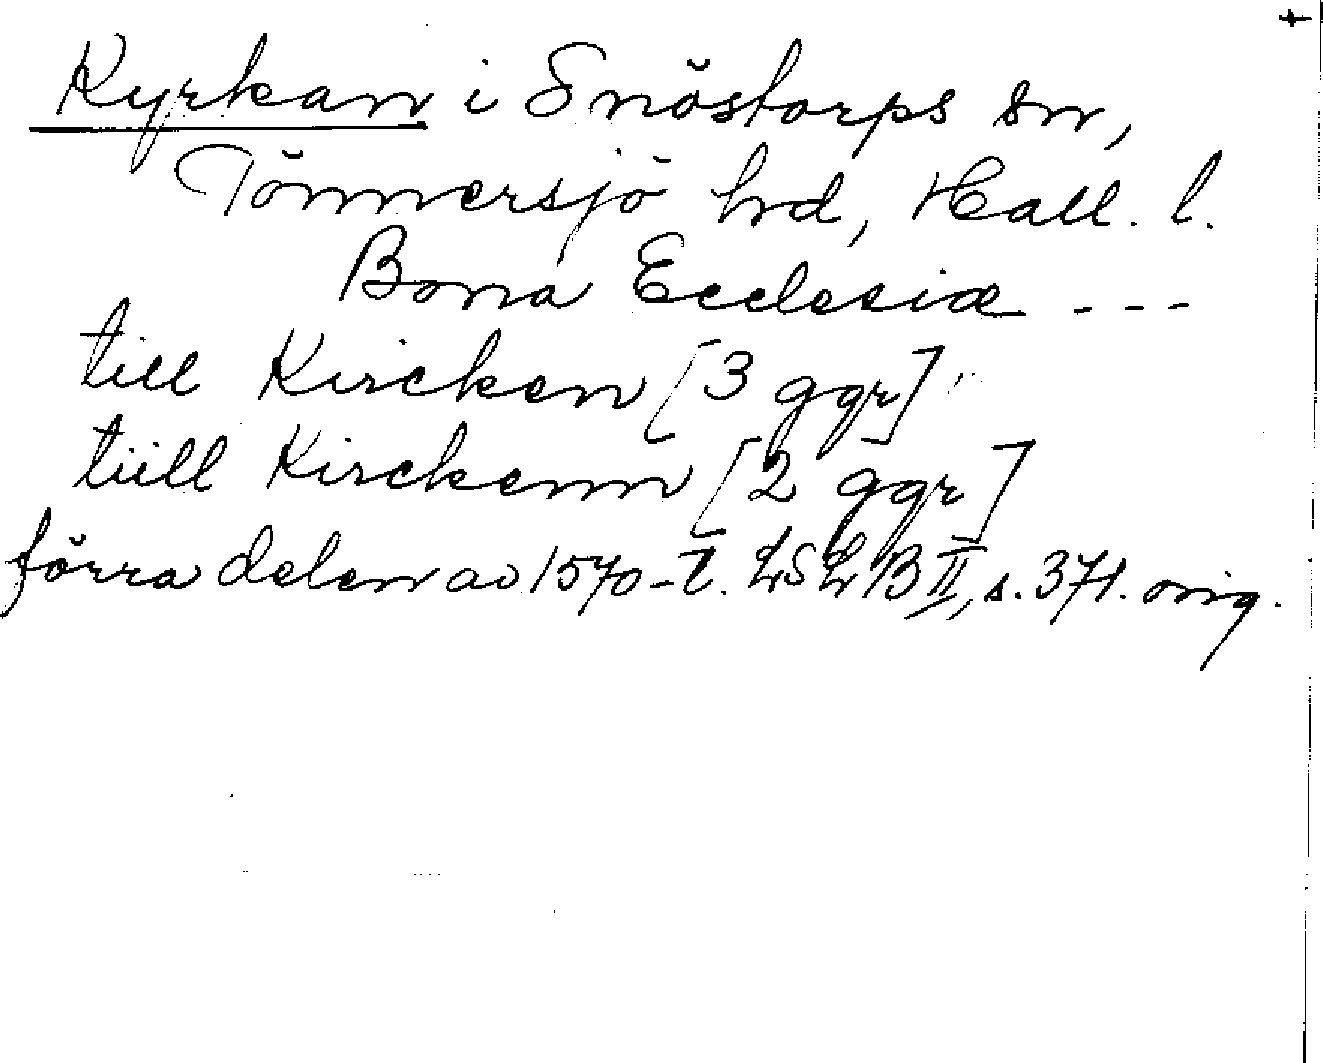 Kyrkan i Snöstorps sn,
Tönnersjö hrd, Hall. l.
Bona Ecclesiæ ---
till Kircken [3 ggr]
tiill Kirckenn [2 ggr]
förra delen av 1570-t. LSLB II, s. 371. orig.